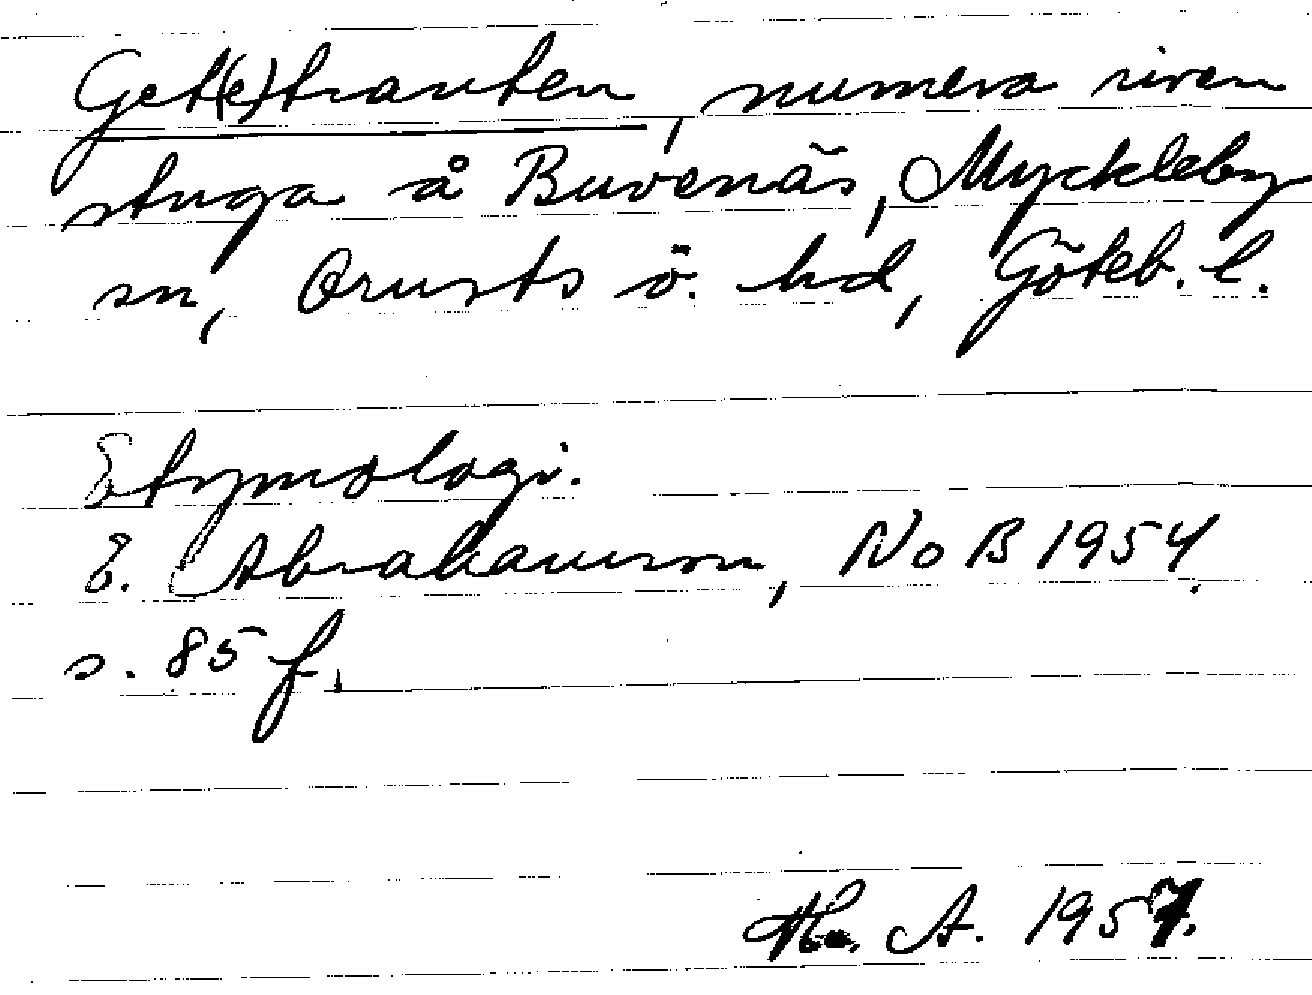 Get(e)trauten, numera riven
stuga å Buvenäs, Myckleby
sn, Orusts ö. hd, Göteb. l.
Etymologi.
E. Abrahamson, NoB 1954.
s. 85 f.
A. 1957.